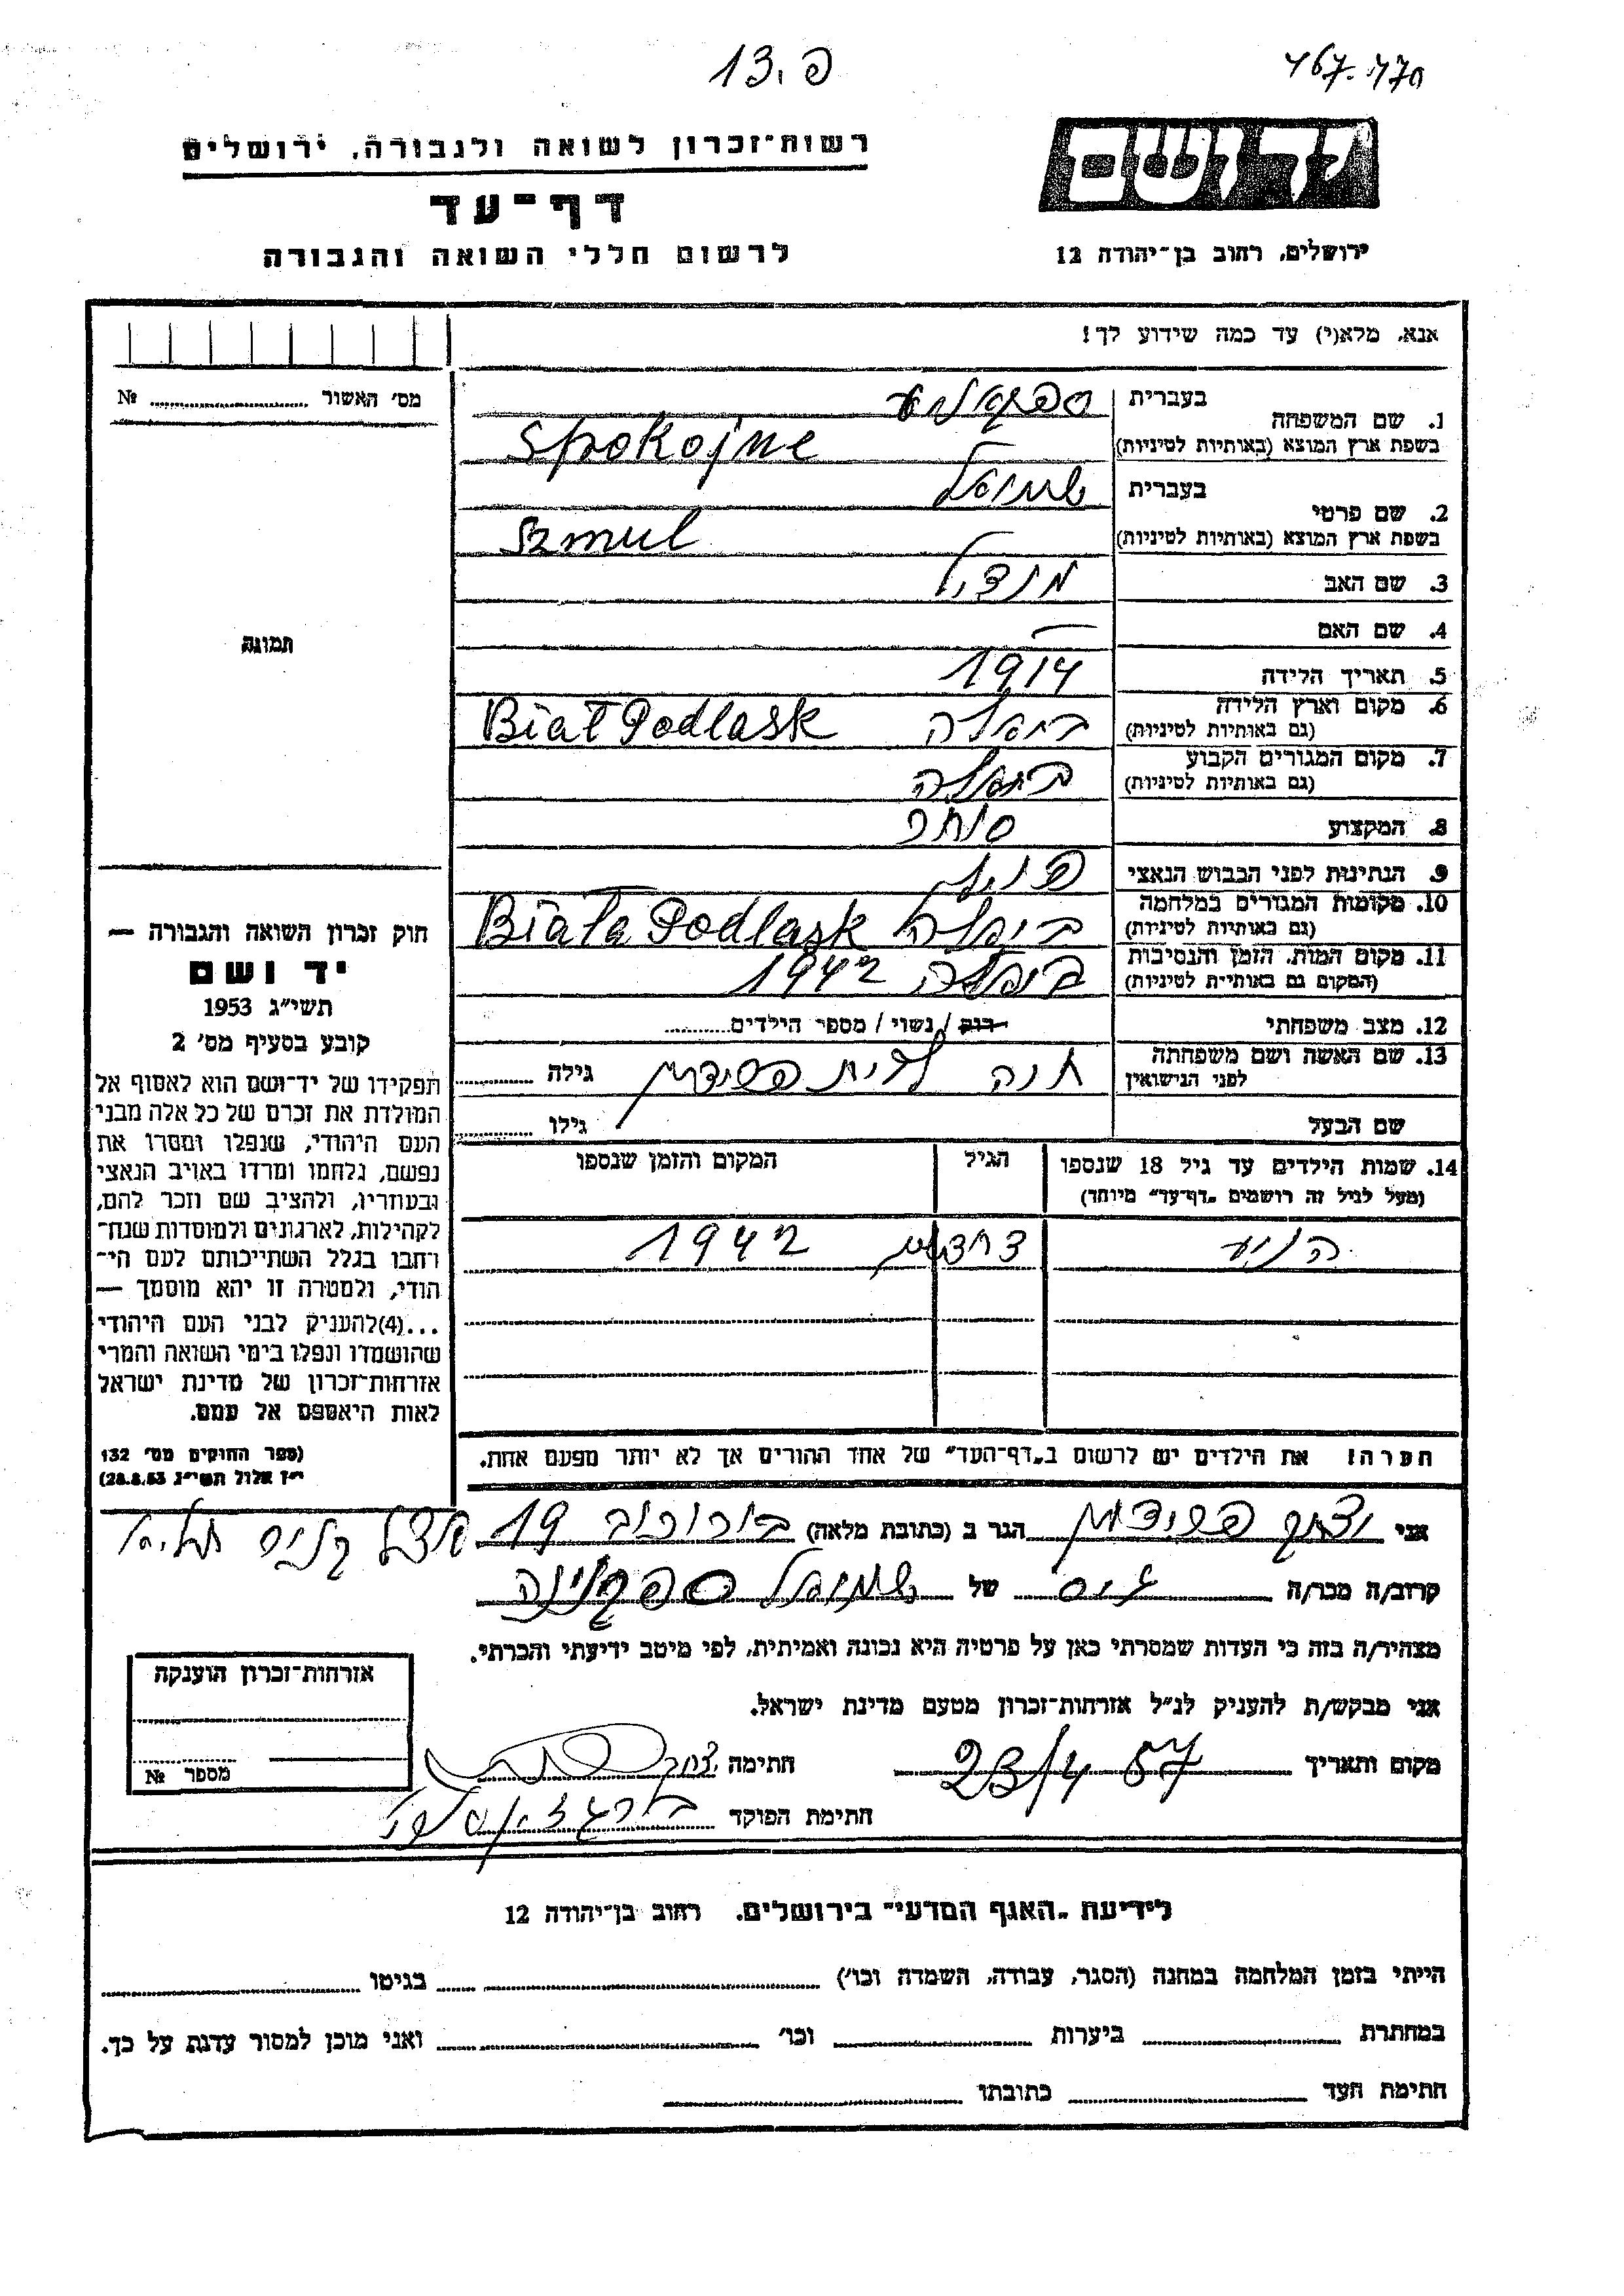 פ. 13
467-470
רשות־זכרון לשואה ולגבורה, ירושלים
דף־עד
לרשום חללי השואה והגבורה
יד ושם
ירושלים, רחוב בן־יהודה 12
אנא, מלא(י) עד כמה שידוע לך!
מס׳ האשור № 
1. שם המשפחה בעברית
בשפת ארץ המוצא (באותיות לטיניות) Spokojne
2. שם פרטי בעברית שמואל
בשפת ארץ המוצא (באותיות לטיניות) Szmul
3. שם האב מנדיל
4. שם האם —
5. תאריך הלידה 1914
6. מקום וארץ הלידה (גם באותיות לטיניות) ביאלה Biał Podlask
7. מקום המגורים הקבוע (גם באותיות לטיניות) ביאלה
8. המקצוע סוחר
9. הנתינות לפני הכבוש הנאצי
10. מקומות המגורים במלחמה (גם באותיות לטיניות) ביאלה Biała Podlask
11. מקום המות, הזמן והנסיבות (המקום גם באותיות לטיניות) ביאלה 1942
12. מצב משפחתי רוק / נשוי / מספר הילדים
13. שם האשה ושם משפחתה לפני הנישואין חנה לבית פרידמן גילה
שם הבעל גילו
14. שמות הילדים עד גיל 18 שנספו
(מעל לגיל זה רושמים „דף־עד” מיוחד)
הגיל
המקום והזמן שנספו
1942
הערה! את הילדים יש לרשום ב„דף־העד” של אחד ההורים אך לא יותר מפעם אחת.
תמונה
חוק זכרון השואה והגבורה —
יד ושם
תשי״ג 1953
קובע בסעיף מס׳ 2
תפקידו של יד־ושם הוא לאסוף אל
המולדת את זכרם של כל אלה מבני
העם היהודי, שנפלו ומסרו את
נפשם, נלחמו ומרדו באויב הנאצי
ובעוזריו, ולהציב שם וזכר להם,
לקהילות, לארגונים ולמוסדות שנח־
רבו בגלל השתייכותם לעם הי־
הודי, ולמטרה זו יהא מוסמך —
...(4)להעניק לבני העם היהודי
שהושמדו ונפלו בימי השואה והמרי
אזרחות־זכרון של מדינת ישראל
לאות היאספם אל עמם.
(ספר החוקים מס׳ 132
י״ז אלול תשי״ג 28.8.53)
אני יצחק פרידמן הגר ב (כתובת מלאה) 19
קרוב/ה מכר/ה גיס של שמואל
מצהיר/ה בזה כי העדות שמסרתי כאן על פרטיה היא נכונה ואמיתית, לפי מיטב ידיעתי והכרתי.
אני מבקש/ת להעניק לנ״ל אזרחות־זכרון מטעם מדינת ישראל.
מקום ותאריך 23/4 57 חתימה
חתימת הפוקד
אזרחות־זכרון הוענקה
מספר №
לידיעת „האגף המדעי” בירושלים, רחוב בן־יהודה 12
הייתי בזמן המלחמה במחנה (הסגר, עבודה, השמדה וכו׳) בגיטו
במחתרת ביערות וכו׳ ואני מוכן למסור עדות על כך.
חתימת העד כתובתו